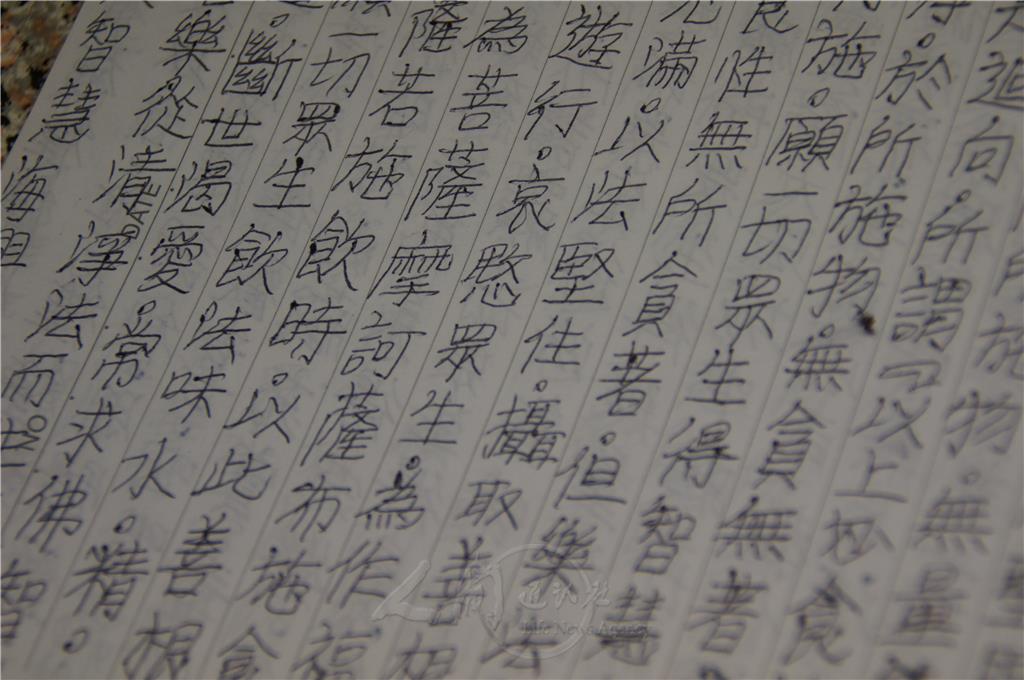 施物。無量
迴向。所謂以上妙食
於所施物。無貪無著
施。願一切眾生得智慧
食性無所貪著。但樂法
充滿。以法堅住。攝取善根
遊行。哀愍眾生。為作福
為菩薩摩訶薩布施食
薩若施飲時。以此善根
一切眾生飲法味水。精
斷世渴愛。常求佛智
樂從清淨法而生
智慧海